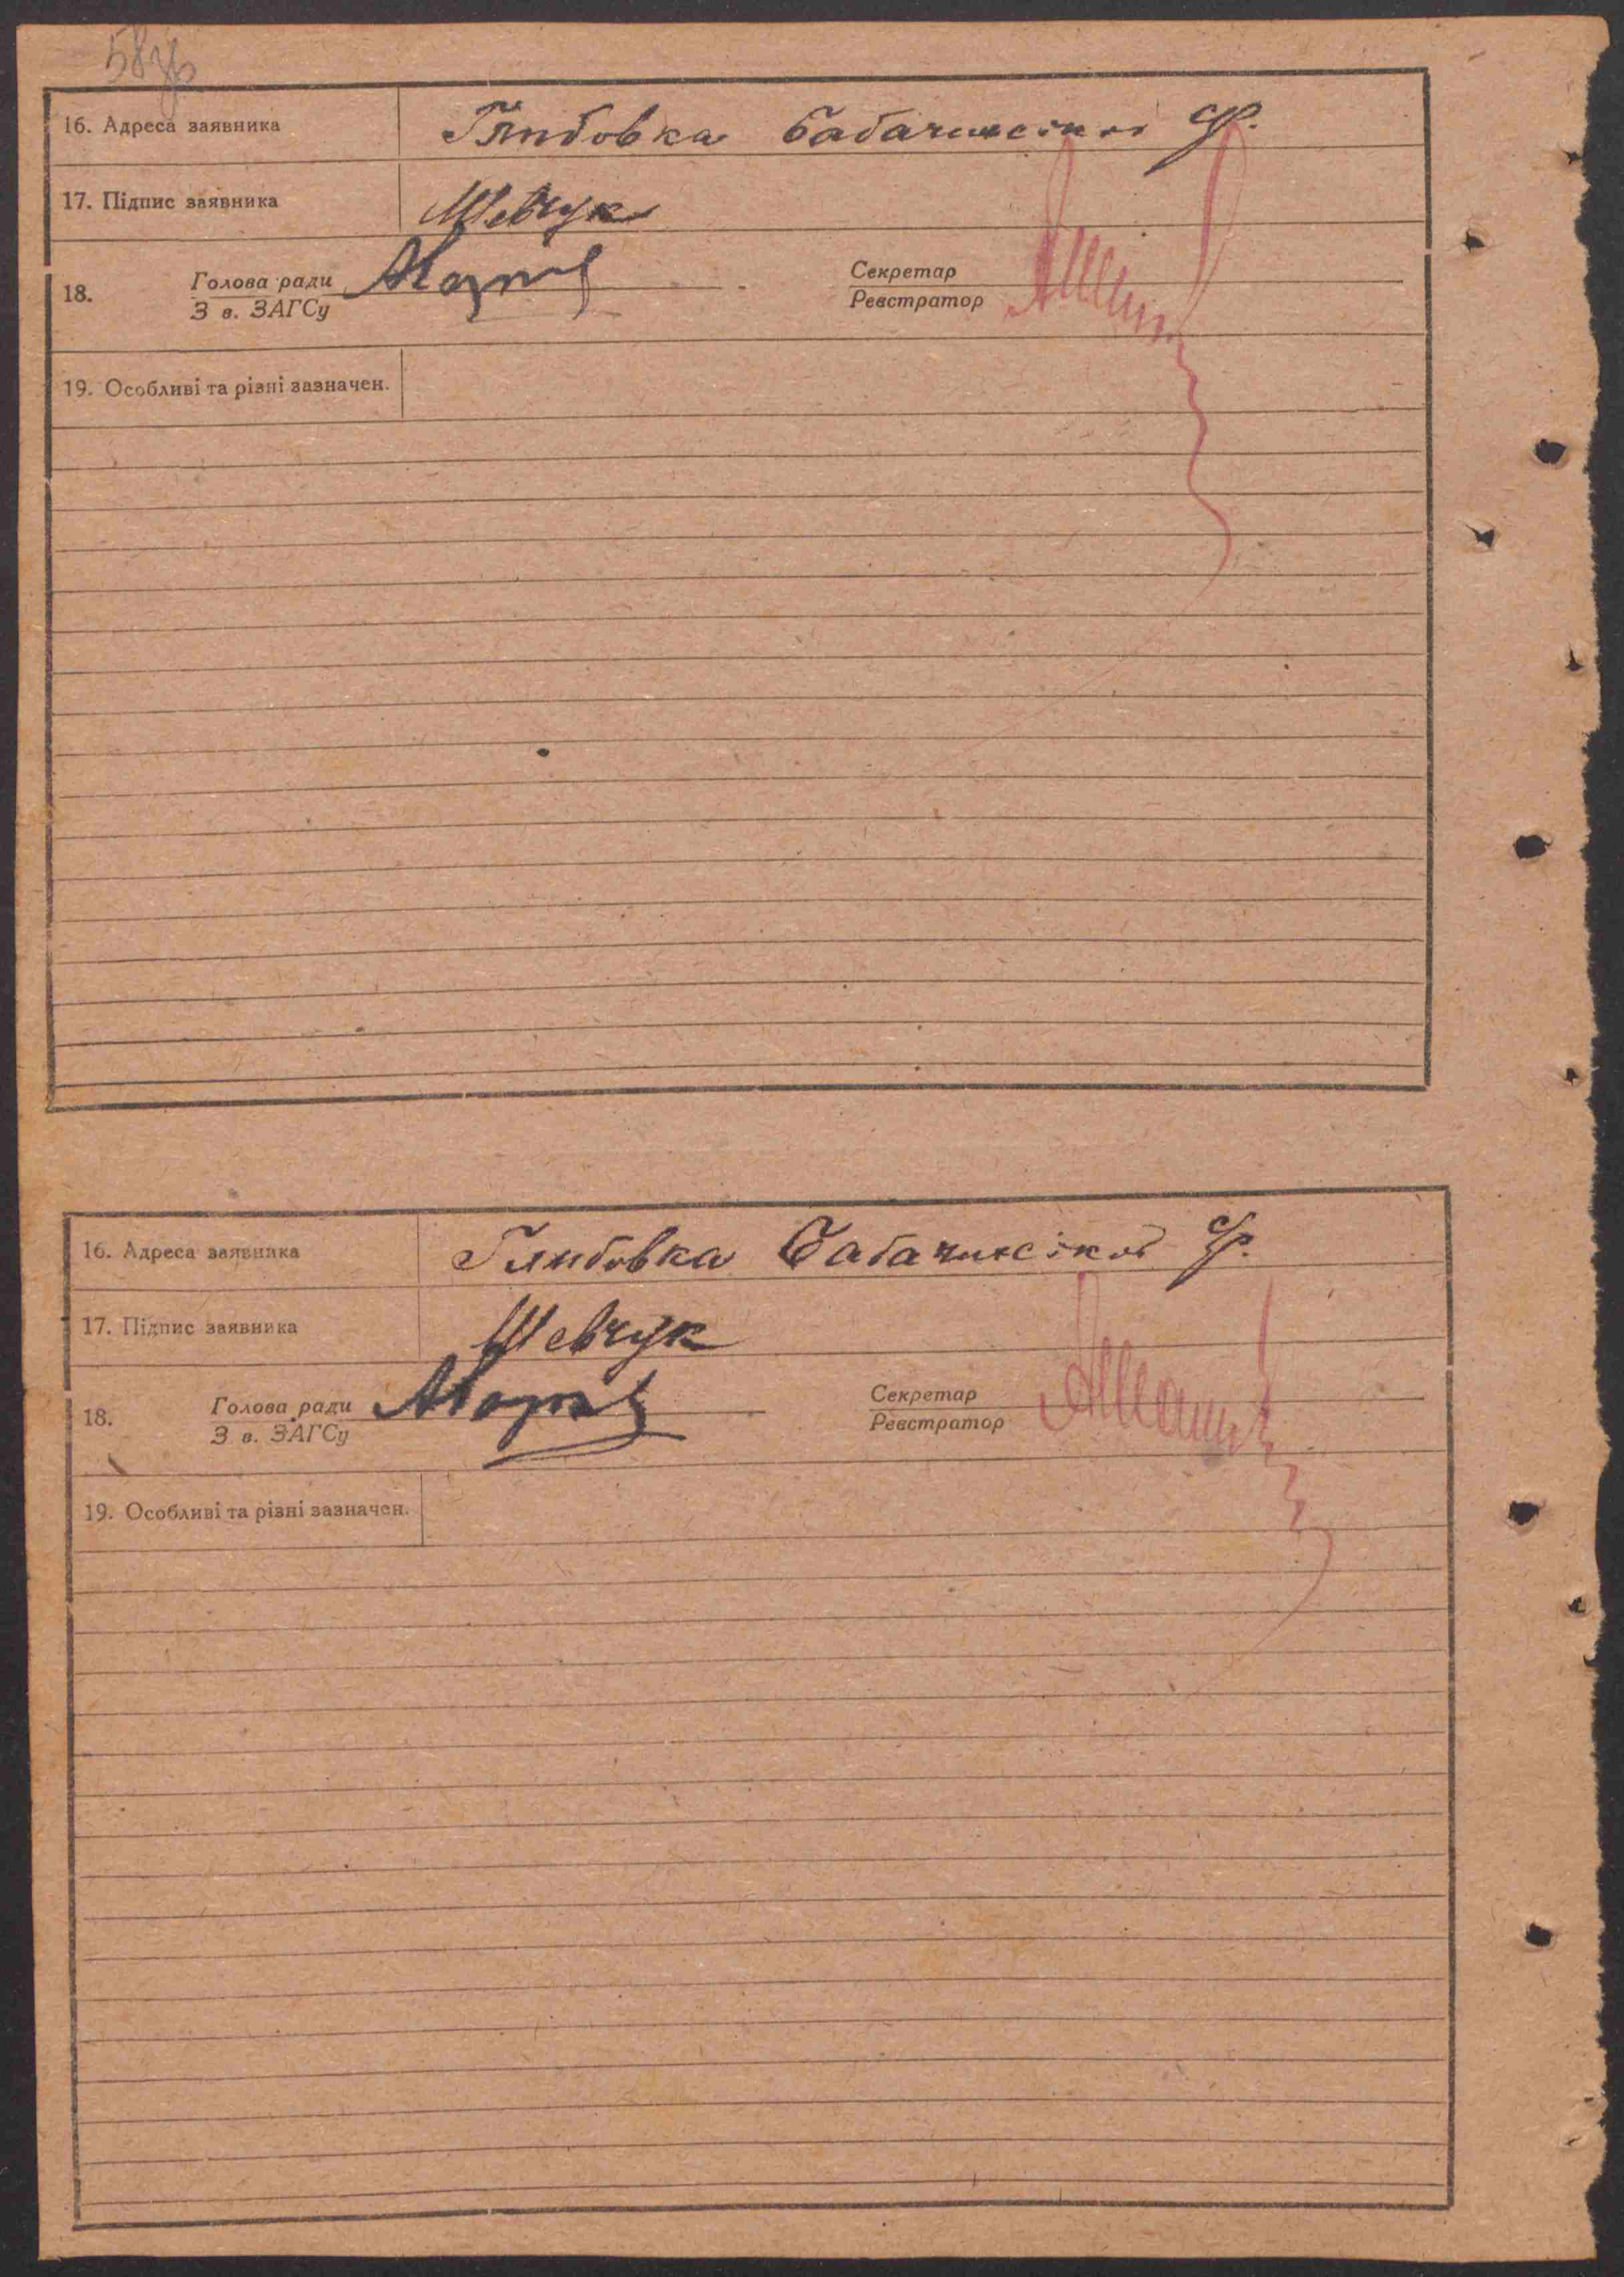 58зв
16. Адреса заявника Глибовка Бабачинскої ср.
17. Підпис заявника Шевчук
18. Голова ради
З в. ЗАГСу
Секретар
Реєстратор
19. Особливі та різні зазначен.
16. Адреса заявника Глибовка Бабачинскої ср.
17. Підпис заявника Шевчук
18. Голова ради
З в. ЗАГСу
Секретар
Реєстратор
19. Особливі та різні зазначен.